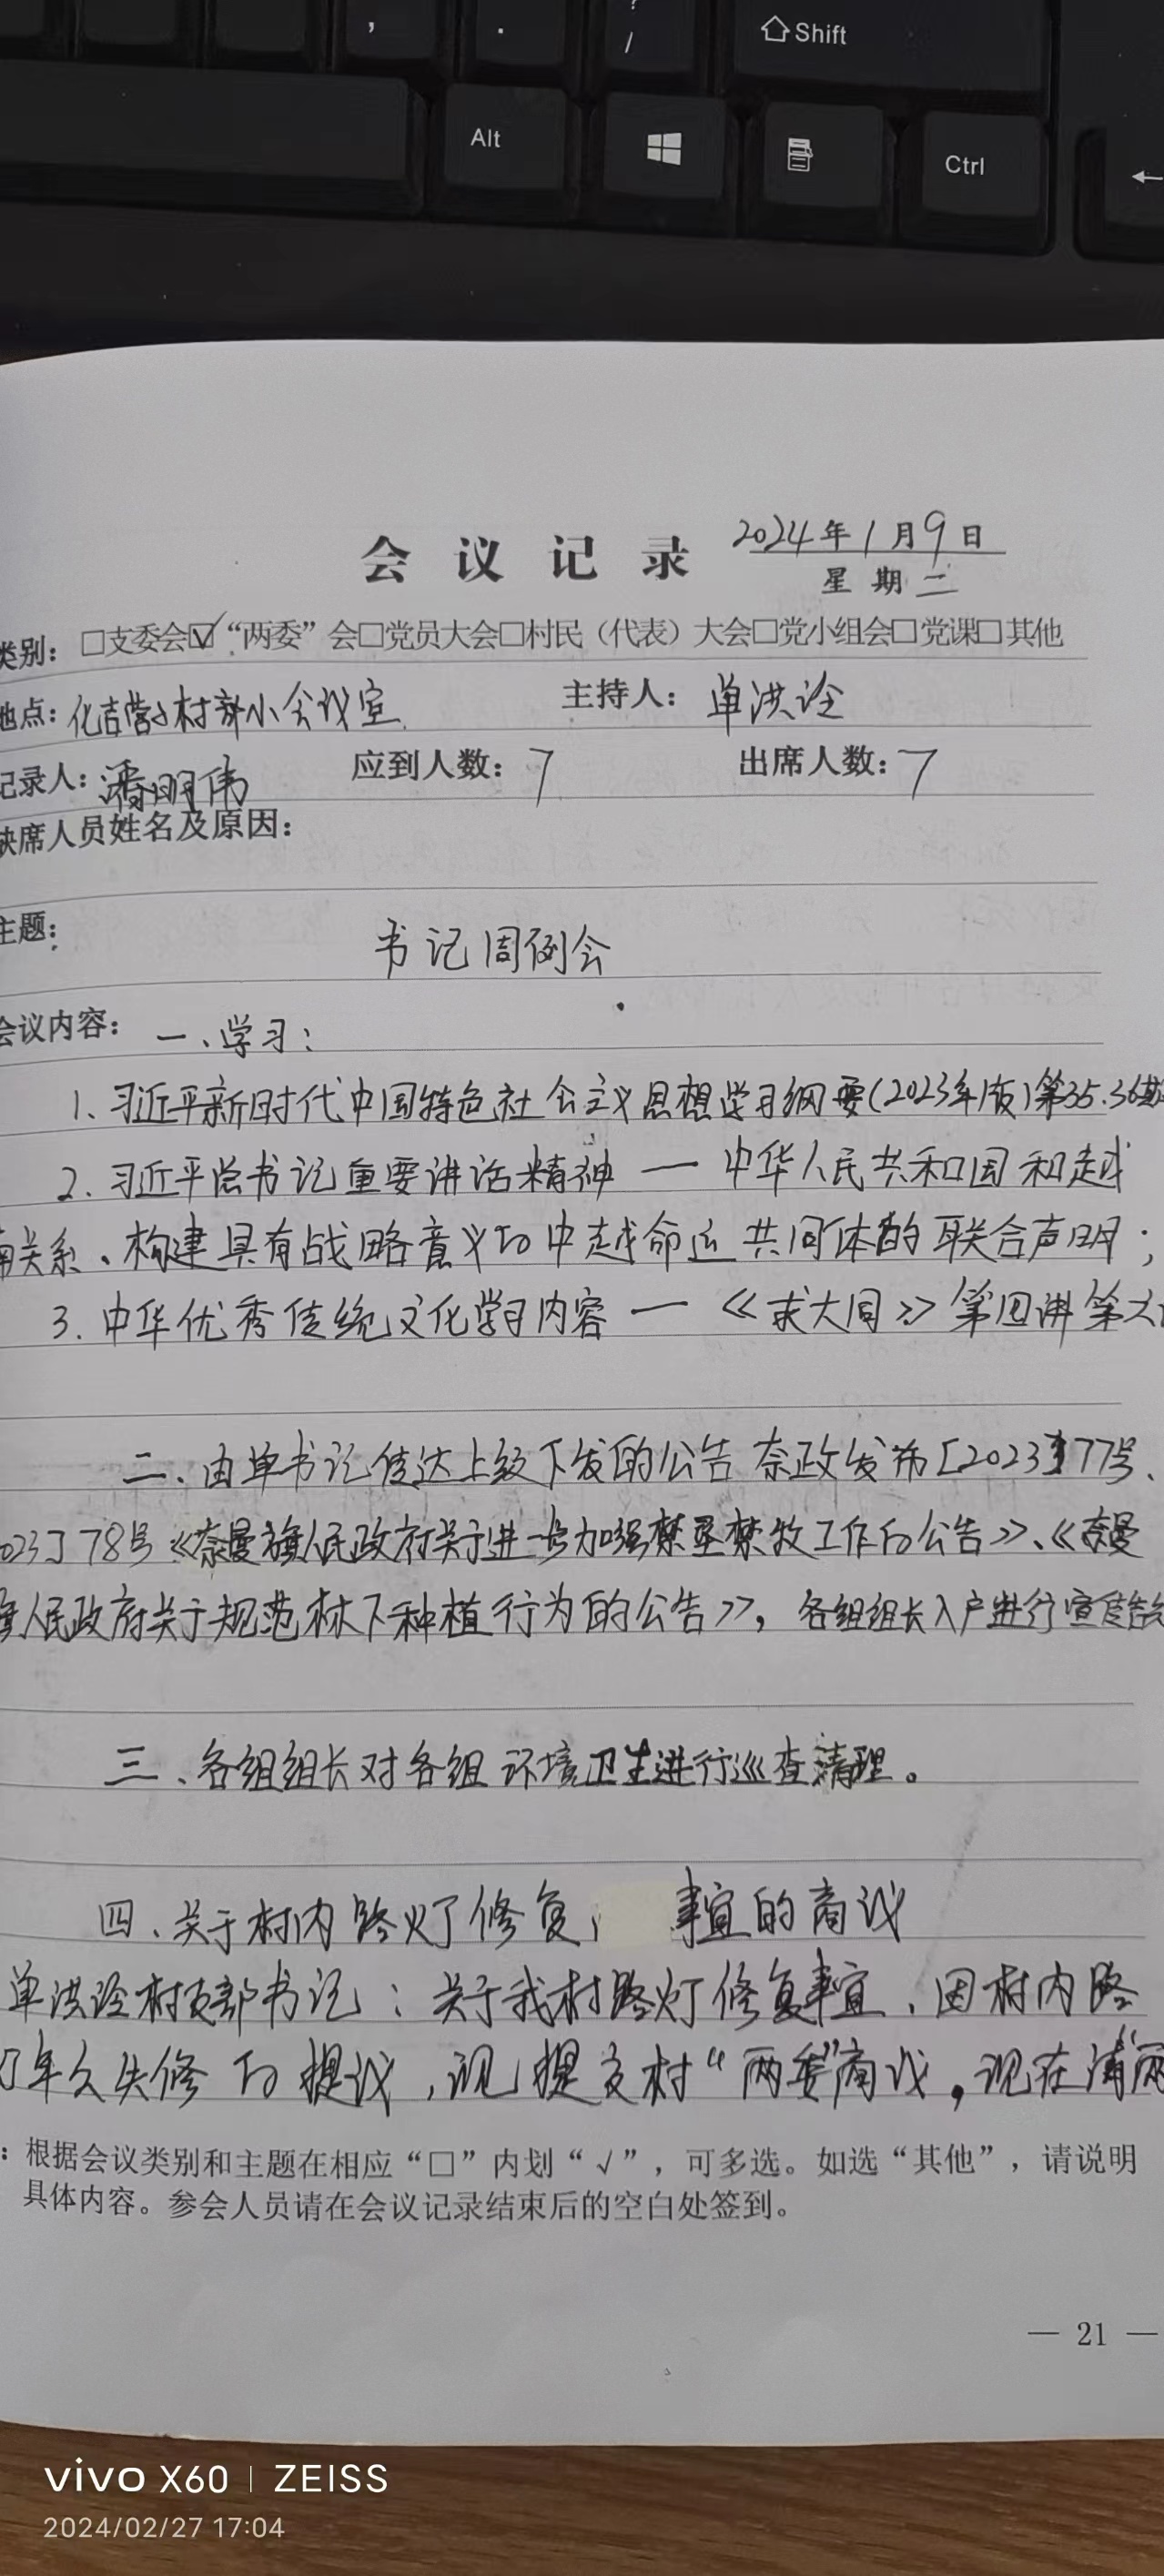 ,
.
?
/
Shift
Alt
Ctrl
←
会议记录 2024年1月9日
星期二
类别: □支委会☑“两委”会□党员大会□村民（代表）大会□党小组会□党课□其他
地点: 化吉营子村部小会议室 主持人: 单洪
记录人: 潘明伟 应到人数: 7 出席人数: 7
缺席人员姓名及原因:
主题: 书记周例会
会议内容: 一、学习:
1. 习近平新时代中国特色社会主义思想学习纲要(2023年版)第35.36
2. 习近平总书记重要讲话精神 — 中华人民共和国和越
南关系、构建具有战略意义的中越命运共同体的联合声明;
3. 中华优秀传统文化学习内容 — 《求大同》第四讲第六
二、由单书记传达上级下发的公告 奈政发布[2023]77号、
023]78号《奈曼旗人民政府关于进一步加强禁垦禁牧工作的公告》、《奈曼
旗人民政府关于规范林下种植行为的公告》, 各组组长入户进行宣传告
三、各组组长对各组环境卫生进行巡查清理。
四、关于村内路灯修复, 事宜的商议
单洪 村支部书记: 关于我村路灯修复事宜、因村内路
灯年久失修的提议, 现提交村“两委”商议。现在请“两
: 根据会议类别和主题在相应“□”内划“√”, 可多选。如选“其他”, 请说明
具体内容。参会人员请在会议记录结束后的空白处签到。
— 21 —
vivo X60 | ZEISS
2024/02/27 17:04